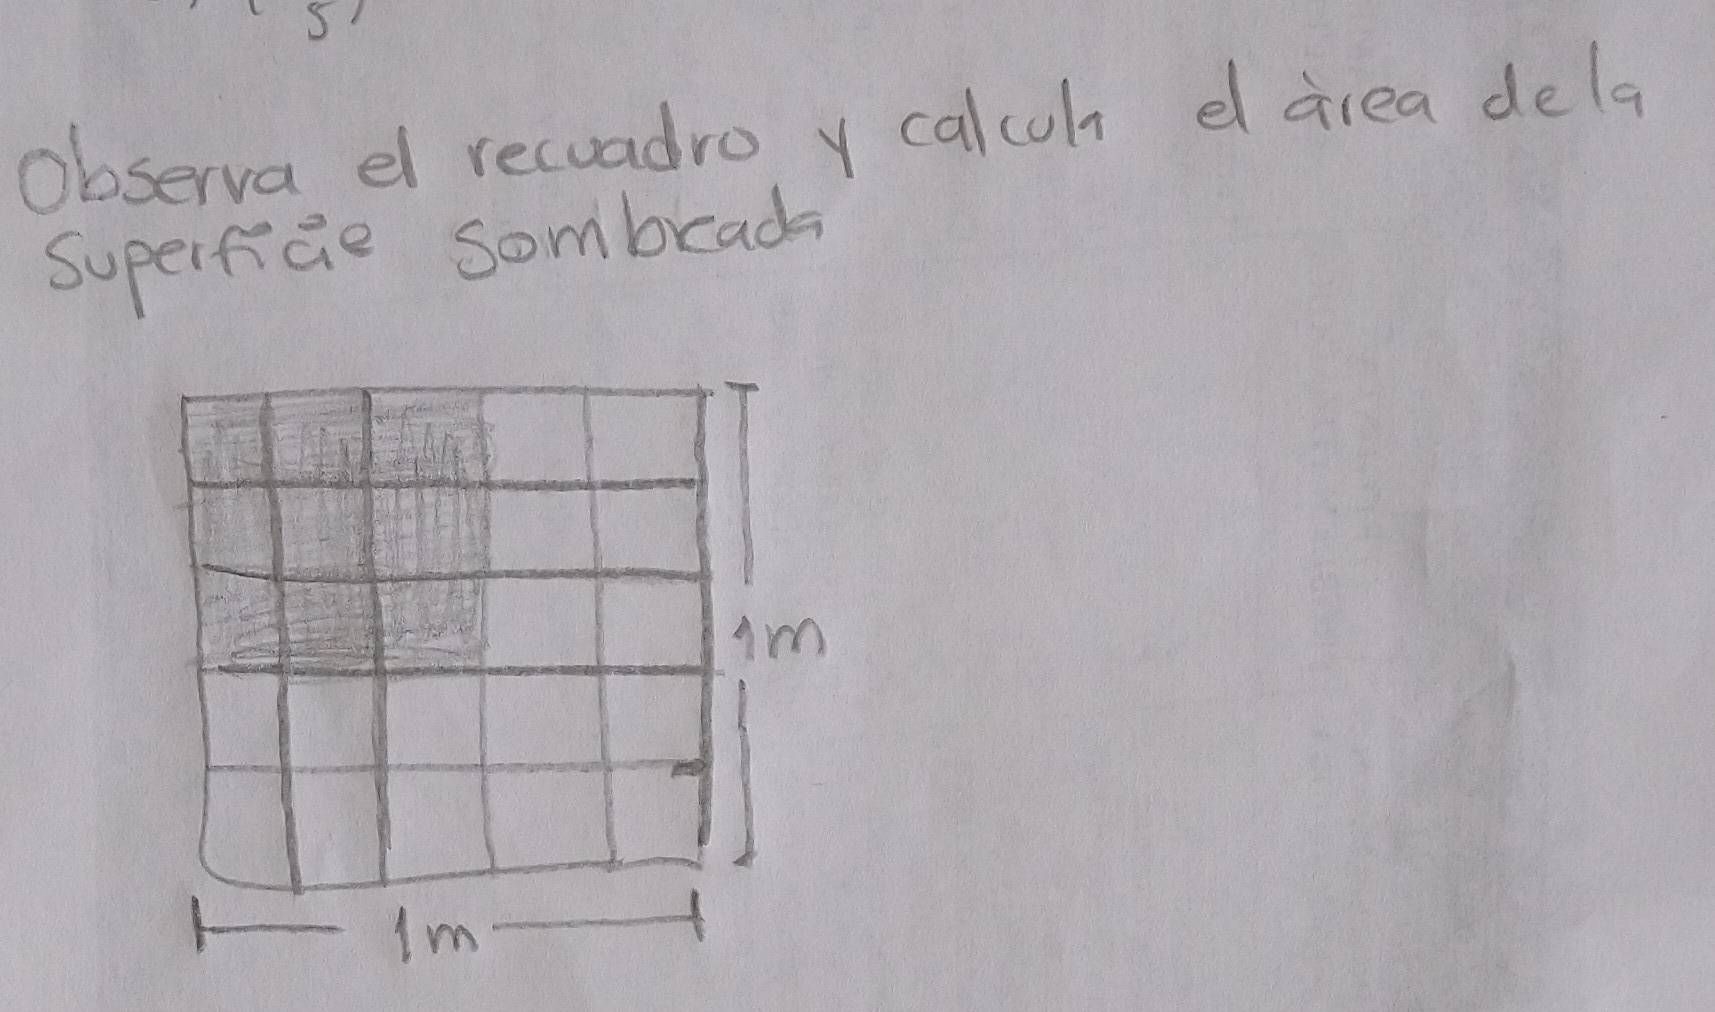 5)
Observa el recuadro y calcula el àrea dela
Superficie Sombreada
1m
1m